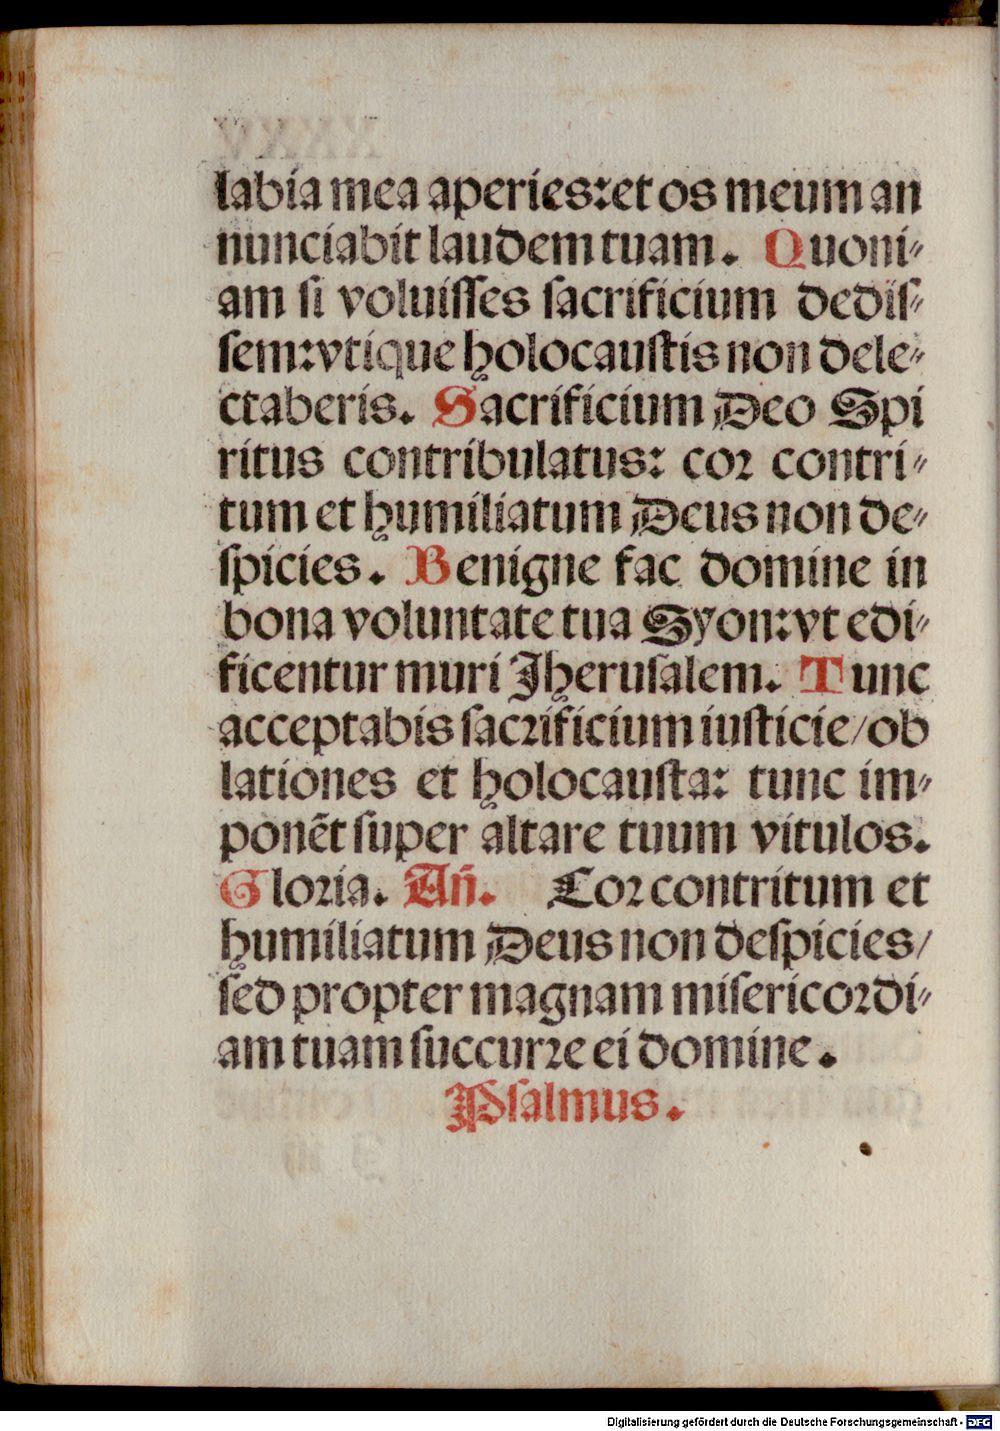 labia mea aperies:et os meum an
nunciabit laudem tuam. Quoni⸗
am ſi voluiſſes ſacrificium dediſ⸗
ſem:vtique holocauſtis non dele⸗
ctaberis. Sacrificium Deo Spi
ritus contribulatus: coꝛ contri⸗
tum et humiliatum Deus non de⸗
ſpicies. Benigne fac domine in
bona voluntate tua Syon:vt edi⸗
ficentur muri Jheruſalem. Tunc
acceptabis ſacꝛificium iuſticie/ob
lationes et holocauſta: tunc im⸗
ponẽt ſuper altare tuum vitulos.
Gloꝛia. Añ. Coꝛ contritum et
humiliatum Deus non deſpicies/
ſed propter magnam miſericoꝛdi⸗
am tuam ſuccurꝛe ei domine.
Pſalmus.
Digitalisierung gefördert durch die Deutsche Forschungsgemeinschaft - DFG